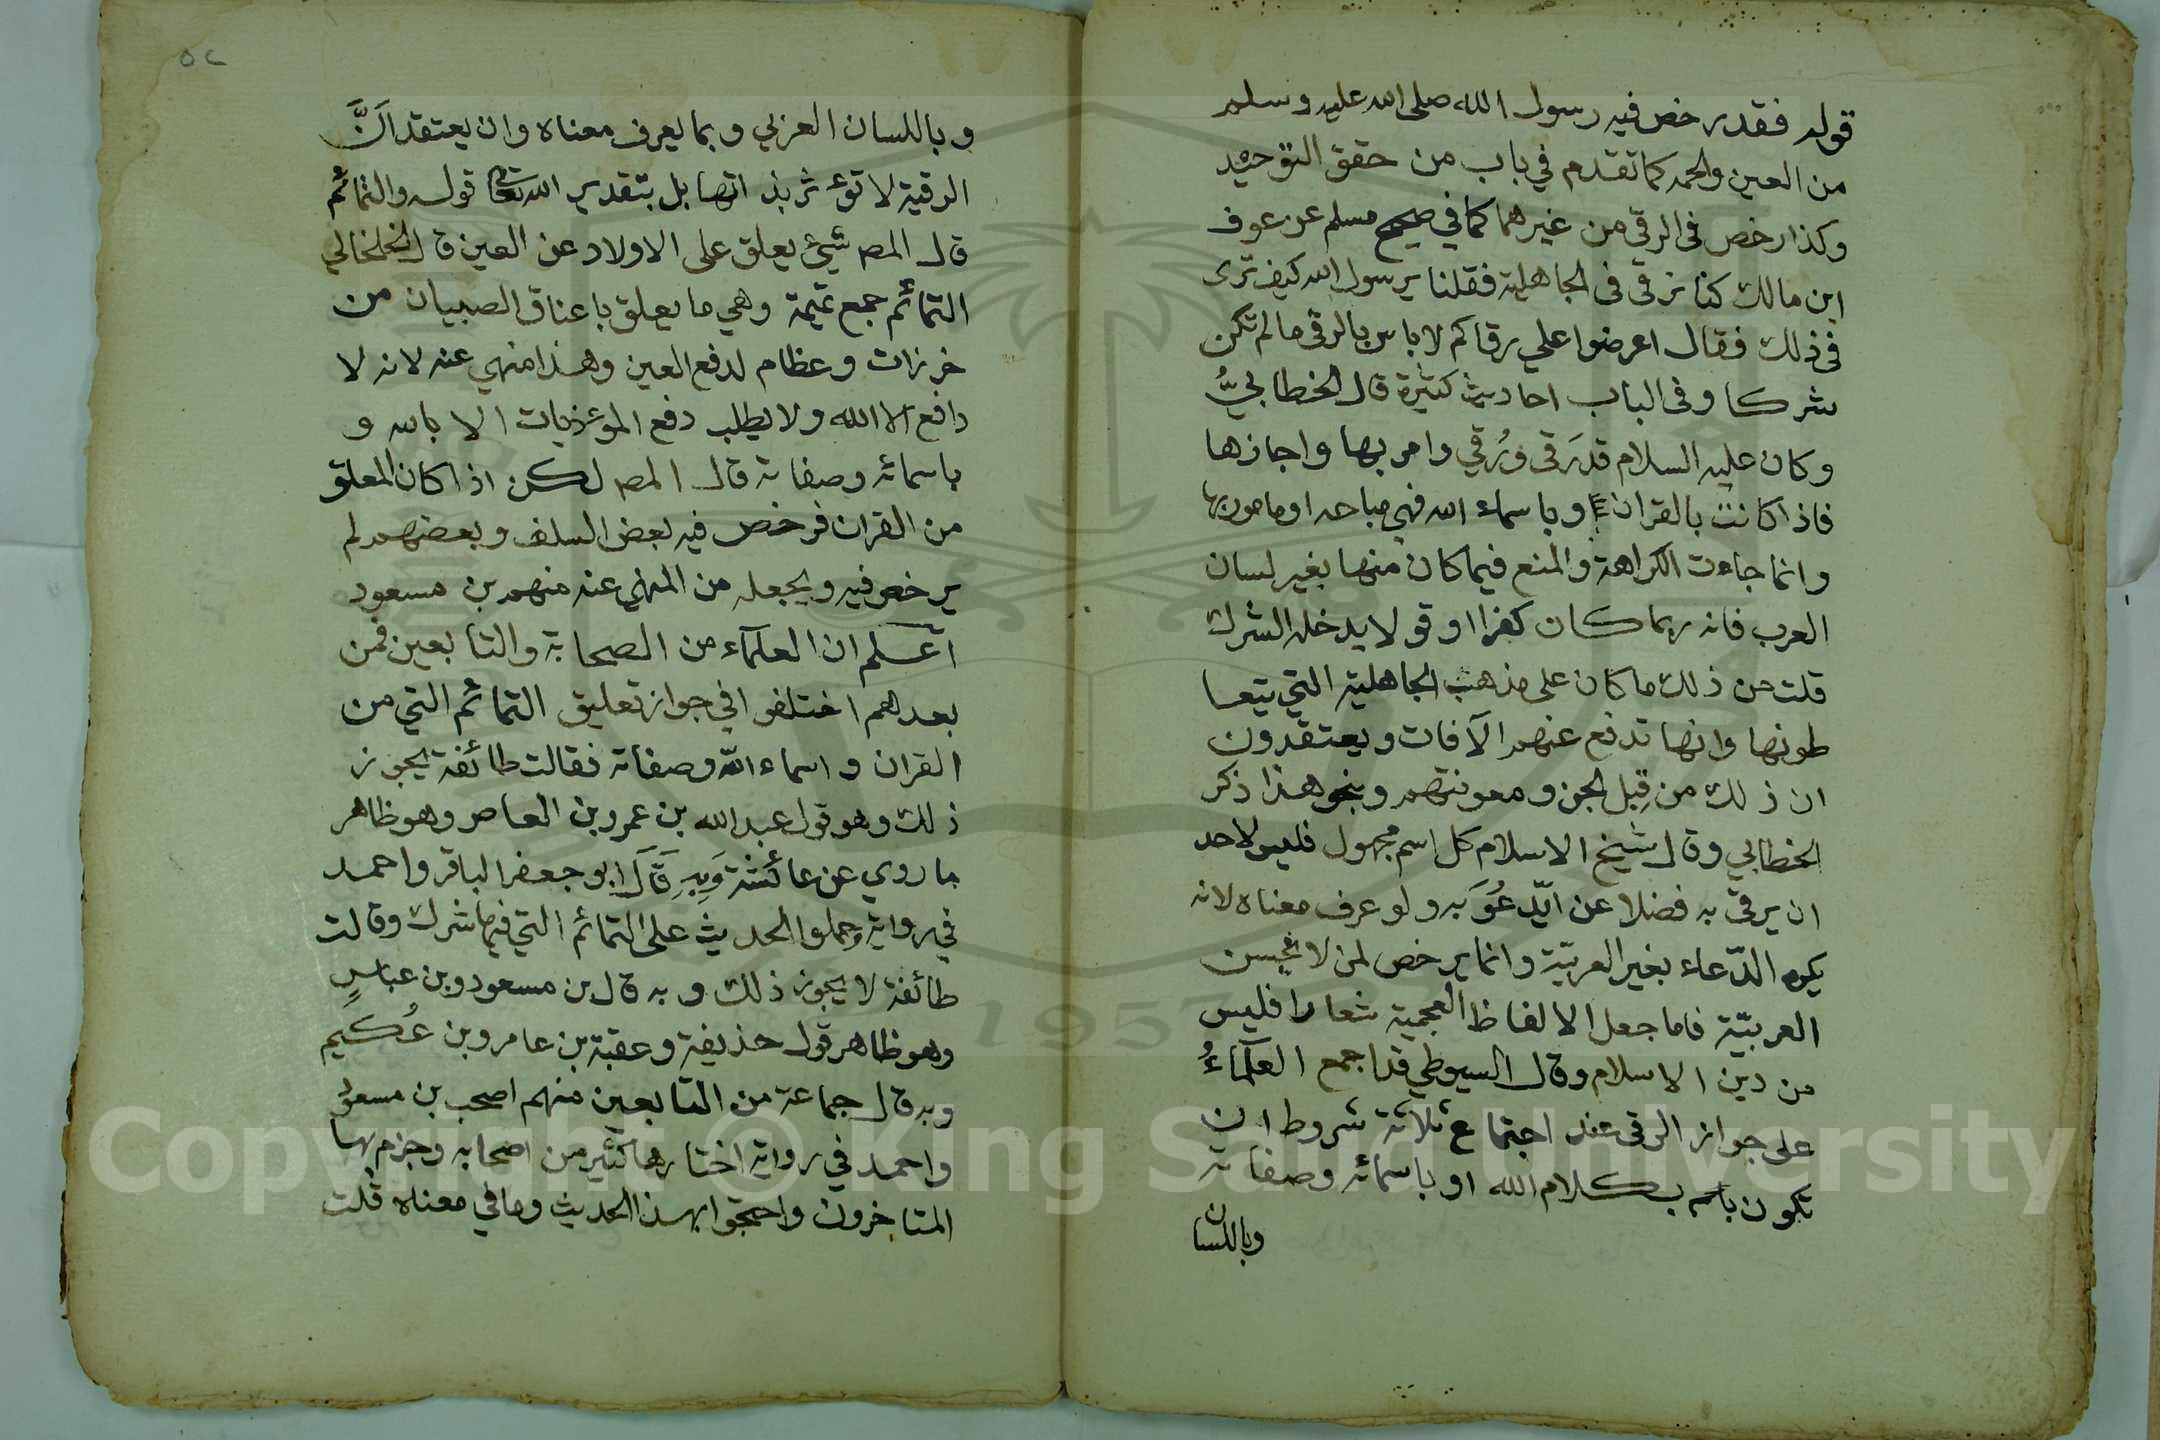 قوله فقد رخص فيه رسول الله صلى الله عليه وسلم
من العين والحمه كما تقدم في باب من حقق التوحيد
وكذا رخص في الرقي من غيرهما كما في صحيح مسلم عن عوف
ابن مالك كنا نرقى في الجاهلية فقلنا يرسول الله كيف ترى
في ذلك فقال اعرضوا علي رقاكم لا باس بالرقى ما لم تكن
شركا وفي الباب احاديث كثيرة قال الخطابيُّ
وكان عليه السلام قد رَقى ورُقي وامر بها واجازها
فاذا كانت بالقران وباسماء الله فهي مباحه او مامور بها
وانما جاءت الكراهة والمنع فيما كان منها بغير لسان
العرب فانه ربما كان كفرا او قولا يدخله الشرك
قلت من ذلك ما كان على مذهب الجاهلية التي يتعا
طونها وانها تدفع عنهم الآفات ويعتقدون
ان ذلك من قِبل الجن ومعونتهم وبنحو هذا ذكر
الخطابي وقال شيخ الاسلام كل اسم مجهول فليس لاحد
ان يرقى به فضلا عن ان يدعُوَ به ولو عرف معناه لانه
يكره الدّعاء بغير العربيّة وانما يرخص لمن لا يحسن
العربيّة فاما جعل الالفاظ العجمية شعارا فليس
من دين الاسلام وقال السيوطي قد اجمع العلماءُ
على جواز الرقى عند اجتماع ثلاثة شروط ان
تكون بكلام الله او باسمائه وصفاته
وباللسان
٥٢
وباللسان العربي وبما يعرف معناه وان يعتقد انَّ
الرقية لا تؤثر بذاتها بل بتقدير الله تعا قوله والتمائم
قال المص شيئ يعلق على الاولاد عن العين قال الخلخالي
التمائم جمع تميمة وهي ما يعلق باعناق الصبيان من
خرزات وعظام لدفع العين وهذا منهي عنه لانه لا
دافع الا الله ولا يطلب دفع المؤذيات الا بالله و
باسمائه وصفاته قال المص لكن اذا كان المعلق
من القران فرخص فيه بعض السلف وبعضهم لم
يرخص فيه ويجعله من المنهي عنه منهم بن مسعود
اعلم ان العلماء من الصحابة والتابعين فمن
بعدهم اختلفوا في جواز تعليق التمائم التي من
القران واسماء الله وصفاته فقالت طائفة يجوز
ذلك وهو قول عبد الله بن عمرو بن العاص وهو ظاهر
ما روي عن عائشة وَبِهِ قَالَ ابو جعفر الباقر واحمد
في رواية وحملوا الحديث على التمائم التي فيها شرك وقالت
طائفة لا يجوز ذلك وبه قال بن مسعود وبن عباسٍ
وهو ظاهر قول حذيفة وعقبة بن عامر وبن عُكيم
وبه قال جماعة من التابعين منهم اصحب بن مسعود
واحمد في رواية اختارها كثير من اصحابه وجزم بها
المتاخرون واحتجوا بهذا الحديث وما في معناه قلت
Copyright © King Saud University
1957